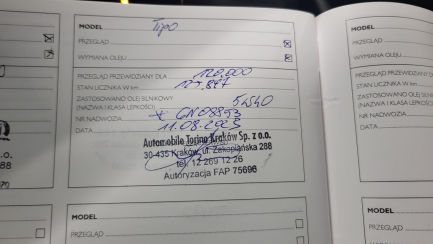 MODEL Tipo
PRZEGLĄD
WYMIANA OLEJU
PRZEGLĄD PRZEWIDZIANY DLA 120.000
STAN LICZNIKA W km
ZASTOSOWANO OLEJ SILNIKOWY
(NAZWA I KLASA LEPKOŚCI) 5W40
NR NADWOZIA
DATA 11.08.2023
Automobile Torino Kraków Sp. z o.o.
30-435 Kraków, ul. Zakopiańska 288
tel. 12 269 12 26
Autoryzacja FAP 75696
MODEL
PRZEGLĄD
MODEL
PRZEGLĄD
WYMIANA OLEJU
PRZEGLĄD PRZEWIDZIANY
STAN LICZNIKA W km
ZASTOSOWANO OLEJ
(NAZWA I KLASA LEPKOŚCI)
NR NADWOZIA
DATA
MODEL
PRZEGLĄD